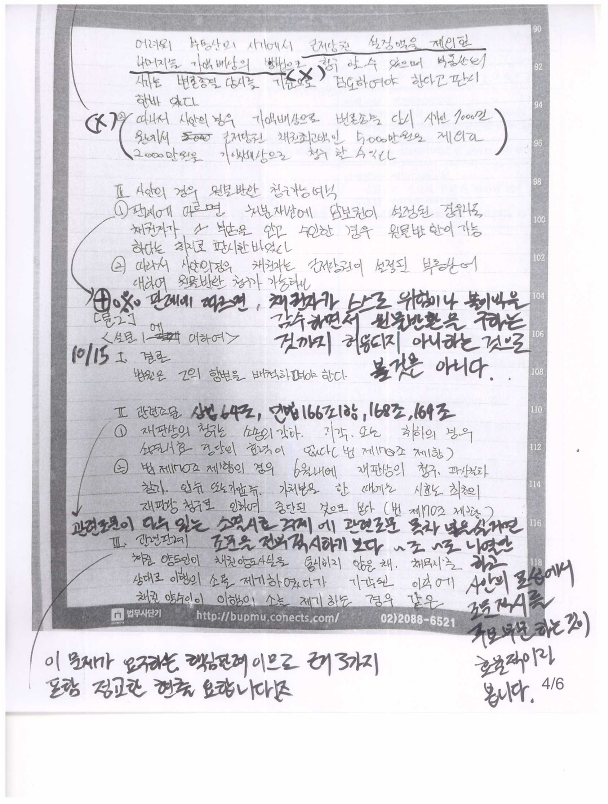 어려워 부동산의 시가에서 근저당권 설정액을 제외한
나머지를 가액배상의 방법으로 청구 할 수 있으며 부동산의
(X)
시가는 변론종결 당시를 기준으로 검토하여야 한다고 판시
한바 있다
(X) ② 따라서 사안의 경우 가액배상으로 변론종결 당시 시가 7000만
원에서 근저당권 채권최고액인 5000만원을 제외한
2000만원을 가액배상으로 청구 할 수 있다
Ⅲ. 사안의 경우 원물반환 청구가능여부
① 판례에 따르면
채권자가 스스로 경우 원물반환이 가능
하다는 취지로 판시한바 있다
② 따라서 사안의 경우 채권자는 근저당권이 설정된 부동산에
대하여 원물반환 청구가 가능하다
판례에 따르면, 채권자가 스스로 위험이나 불이익을
감수하면서 원물반환을 구하는
것까지 허용되지 아니하는 것으로
볼 것은 아니다..
[문2]
<설문 1에 대하여>
10/15 Ⅰ. 결론
법원은 乙의 항변을 배척하여야 한다
Ⅱ. 관련조문 상법 64조, 민법 166조 1항, 168조, 169조
① 재판상의 청구는 소송의 각하, 기각 또는 취하의 경우
소멸시효 중단의 효력이 없다 (법 제170조 제1항)
② 법 제170조 제1항의 경우 6월내에 재판상의 청구, 파산절차
참가, 압류 또는 가압류, 가처분을 한 때에는 시효는 최초의
재판상 청구로 인하여 중단된 것으로 본다 (법 제170조 제2항)
관련조문이 다수 있는 소멸시효 주제에 관련조문 목차 넣을실거면
조문을 전부 적시하기 보다 ~조 ~로 나열만
하고
사안의 포섭에서
조문 적시를
하는 것이
효율적이라
봅니다.
Ⅲ. 관련판례
채권 양도인이 채권양도사실을 통지하지 않은 채, 채무자를
상대로 이행의 소를 제기하였다가 기각된 이후에
채권 양수인이 이행의 소를 제기하는 경우 같은
이 문제가 요구하는 핵심판례 이므로 근거 3가지
포함 정교한 현출 요합니다
90
92
94
96
98
100
102
104
106
108
110
112
114
116
118
법무사단기
http://bupmu.conects.com
02)2088-6521
4/6